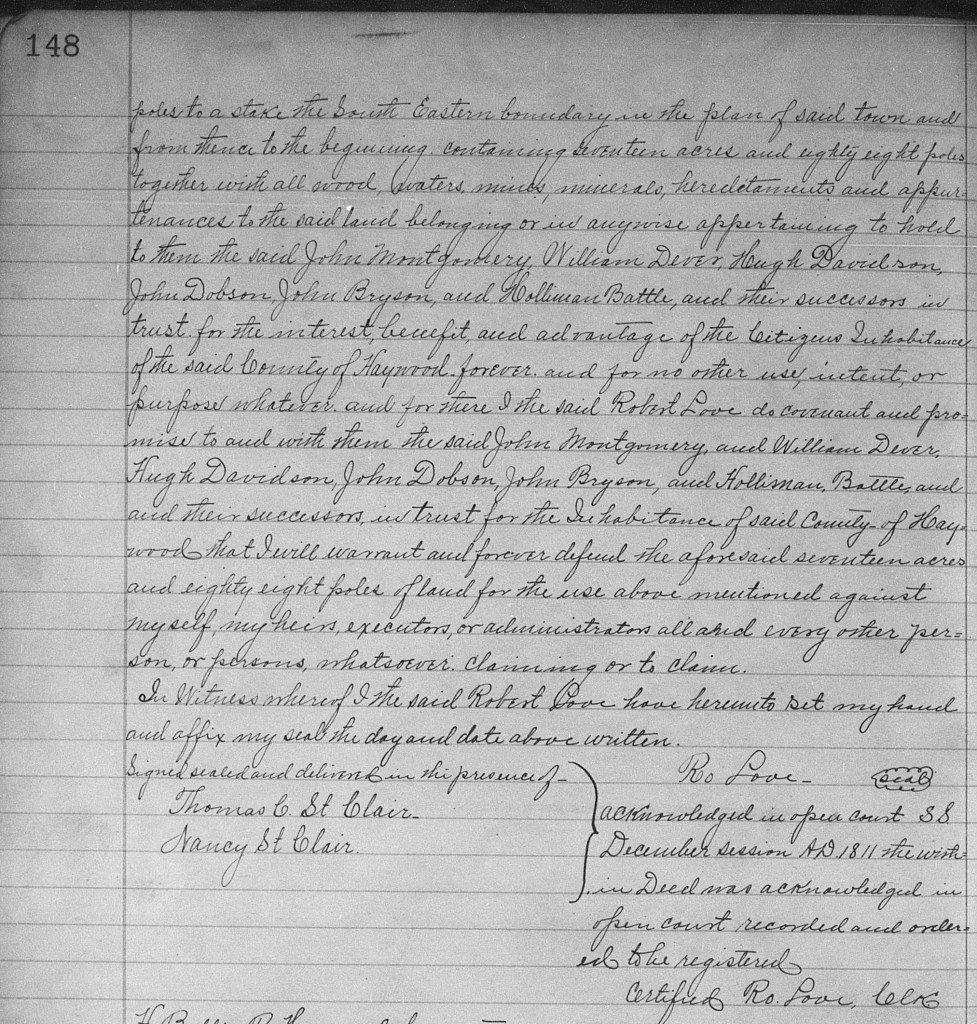 148
poles to a stake the South Eastern boundary in the plan of said town and
from thence to the beginning. containing seventeen acres and eighty eight poles
together with all wood, waters, mines, minerals, hereditaments and appur=
tenances to the said land belonging or in anywise appertaining to hold
to them the said John Montgomery, William Dever, Hugh Davidson,
John Dobson, John Bryson, and Holliman Battle, and their successors in
trust for the interest, benefit, and advantage of the Citizens Inhabitance
of the said County of Haywood forever. and for no other use, intent, or
purpose whatever. and for there I the said Robert Love do covenant and pro=
mise to and with them the said John Montgomery, and William Dever,
Hugh Davidson, John Dobson, John Bryson, and Holliman, Battle, and
and their successors, in trust for the Inhabitance of said County of Hay=
wood that I will warrant and forever defend the aforesaid seventeen acres
and eighty eight poles of land for the use above mentioned against
myself, my heirs, executors, or administrators all and every other per=
son, or persons, whatsoever. claiming or to claim.
In Witness whereof I the said Robert Love have hereunto set my hand
and affix my seal the day and date above written.
Signed sealed and delivered in the presence of
Thomas C. St Clair.
Nancy St Clair.
Ro Love seal
acknowledged in open court SS
December session A.D. 1811 the with=
in Deed was acknowledged in
open court recorded and order=
ed to be registered
Certified Ro. Love, Clk